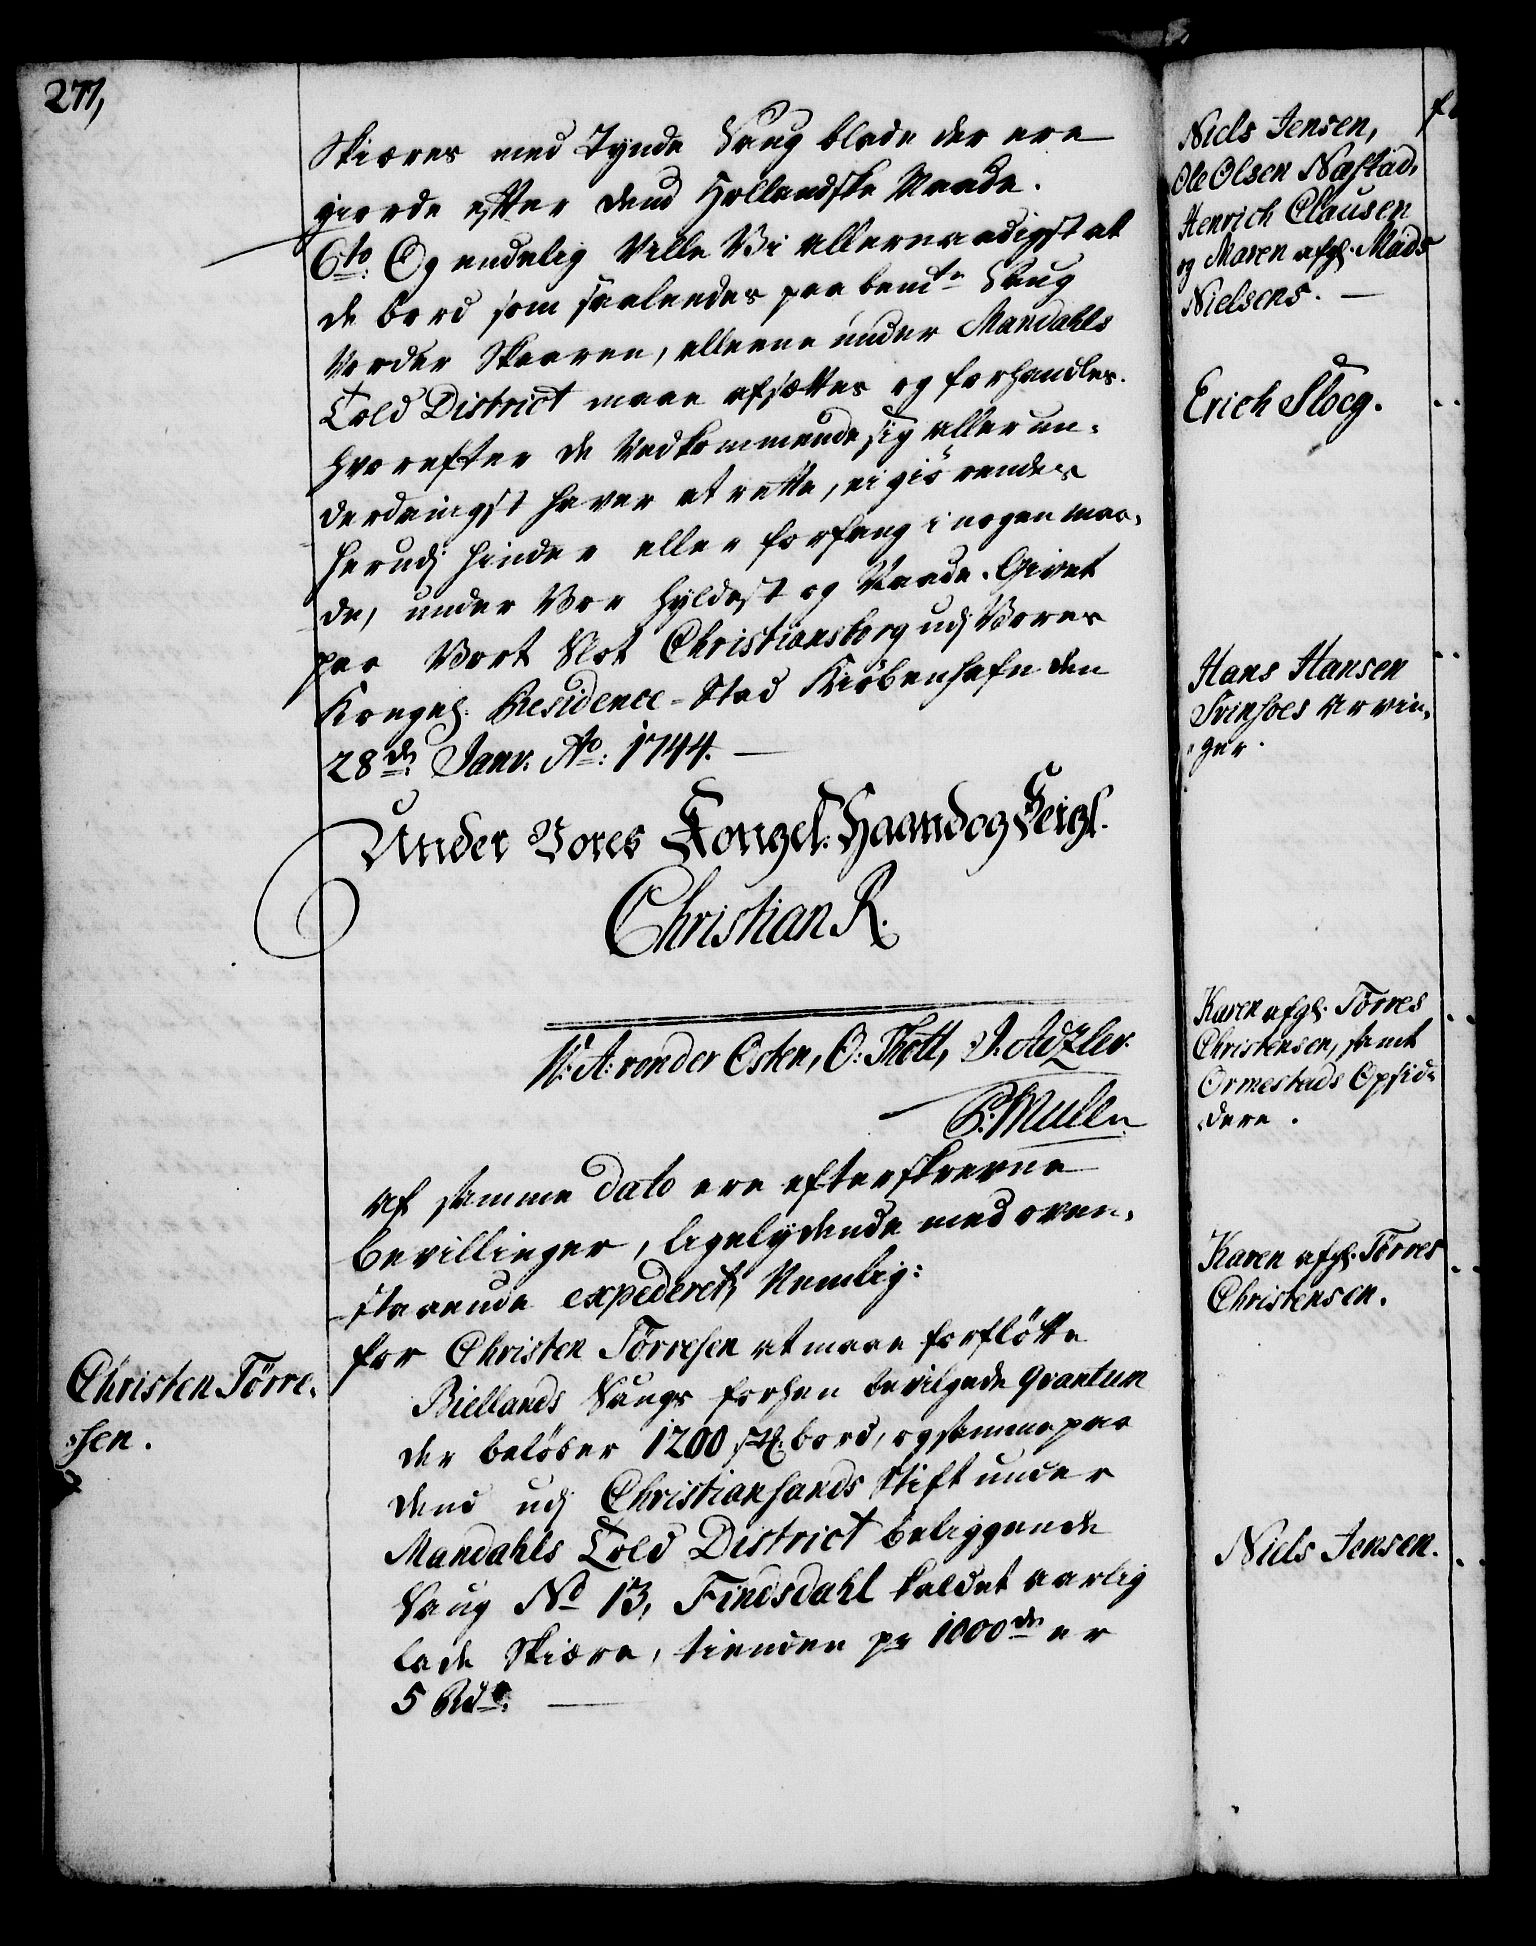 277,
Skiæres med Tynde Saug blade der ere
giorde efter dend Hollandske Maade.
6to: Og endelig Ville Vi allernaadigst at
de bord som saaledes paa bemte Saug
Vorder Skaaren, alleene under Mandahls
Told District maae afsættes og forhandles.
Hvorefter de Vedkommende sig allerun-
derdanigst haver at rette, ei giörendes
herudj hinder eller forfang i nogen maa-
de, under Vor Hyldest og Naade. Givet
paa Vort Slot Christiansborg udj Vores
Kongel. Residence-Stad Kiöbenhafn den
28de Janv. Ao: 1744. —
Under Vores Kongel: Haand og Seigl.
Christian R.
W: A: von der Osten, O: Thott, J. Adzler.
P: Mulle
Af samme dato ere efterskrevne
bevillinger, ligelydende med oven-
staaende expederet, Nemlig:
Christen Törre-
sen.
for Christen Törresen at maae forflötte
Biellands Saugs forhen bevilgede Qvantum
der belöber 1200 st. bord, og samme paa
dend udj Christiansands Stift under
Mandahls Told District beliggende
Saug No 13, Findsdahl kaldet aarlig
lade Skiære, tienden pr 1000de er
5 Rdr. —
Niels Jensen,
Ole Olsen Nastad,
Henrich Clausen
og Maren afgl. Mads
Nielsens. —
Erich Sloeg.
Hans Hansen
Svinsoes Arvin-
ger.
Karen afgl. Törres
Christensen, samt
Ormestads Opsid-
dere.
Karen afgl. Törres
Christensen.
Niels Jensen.